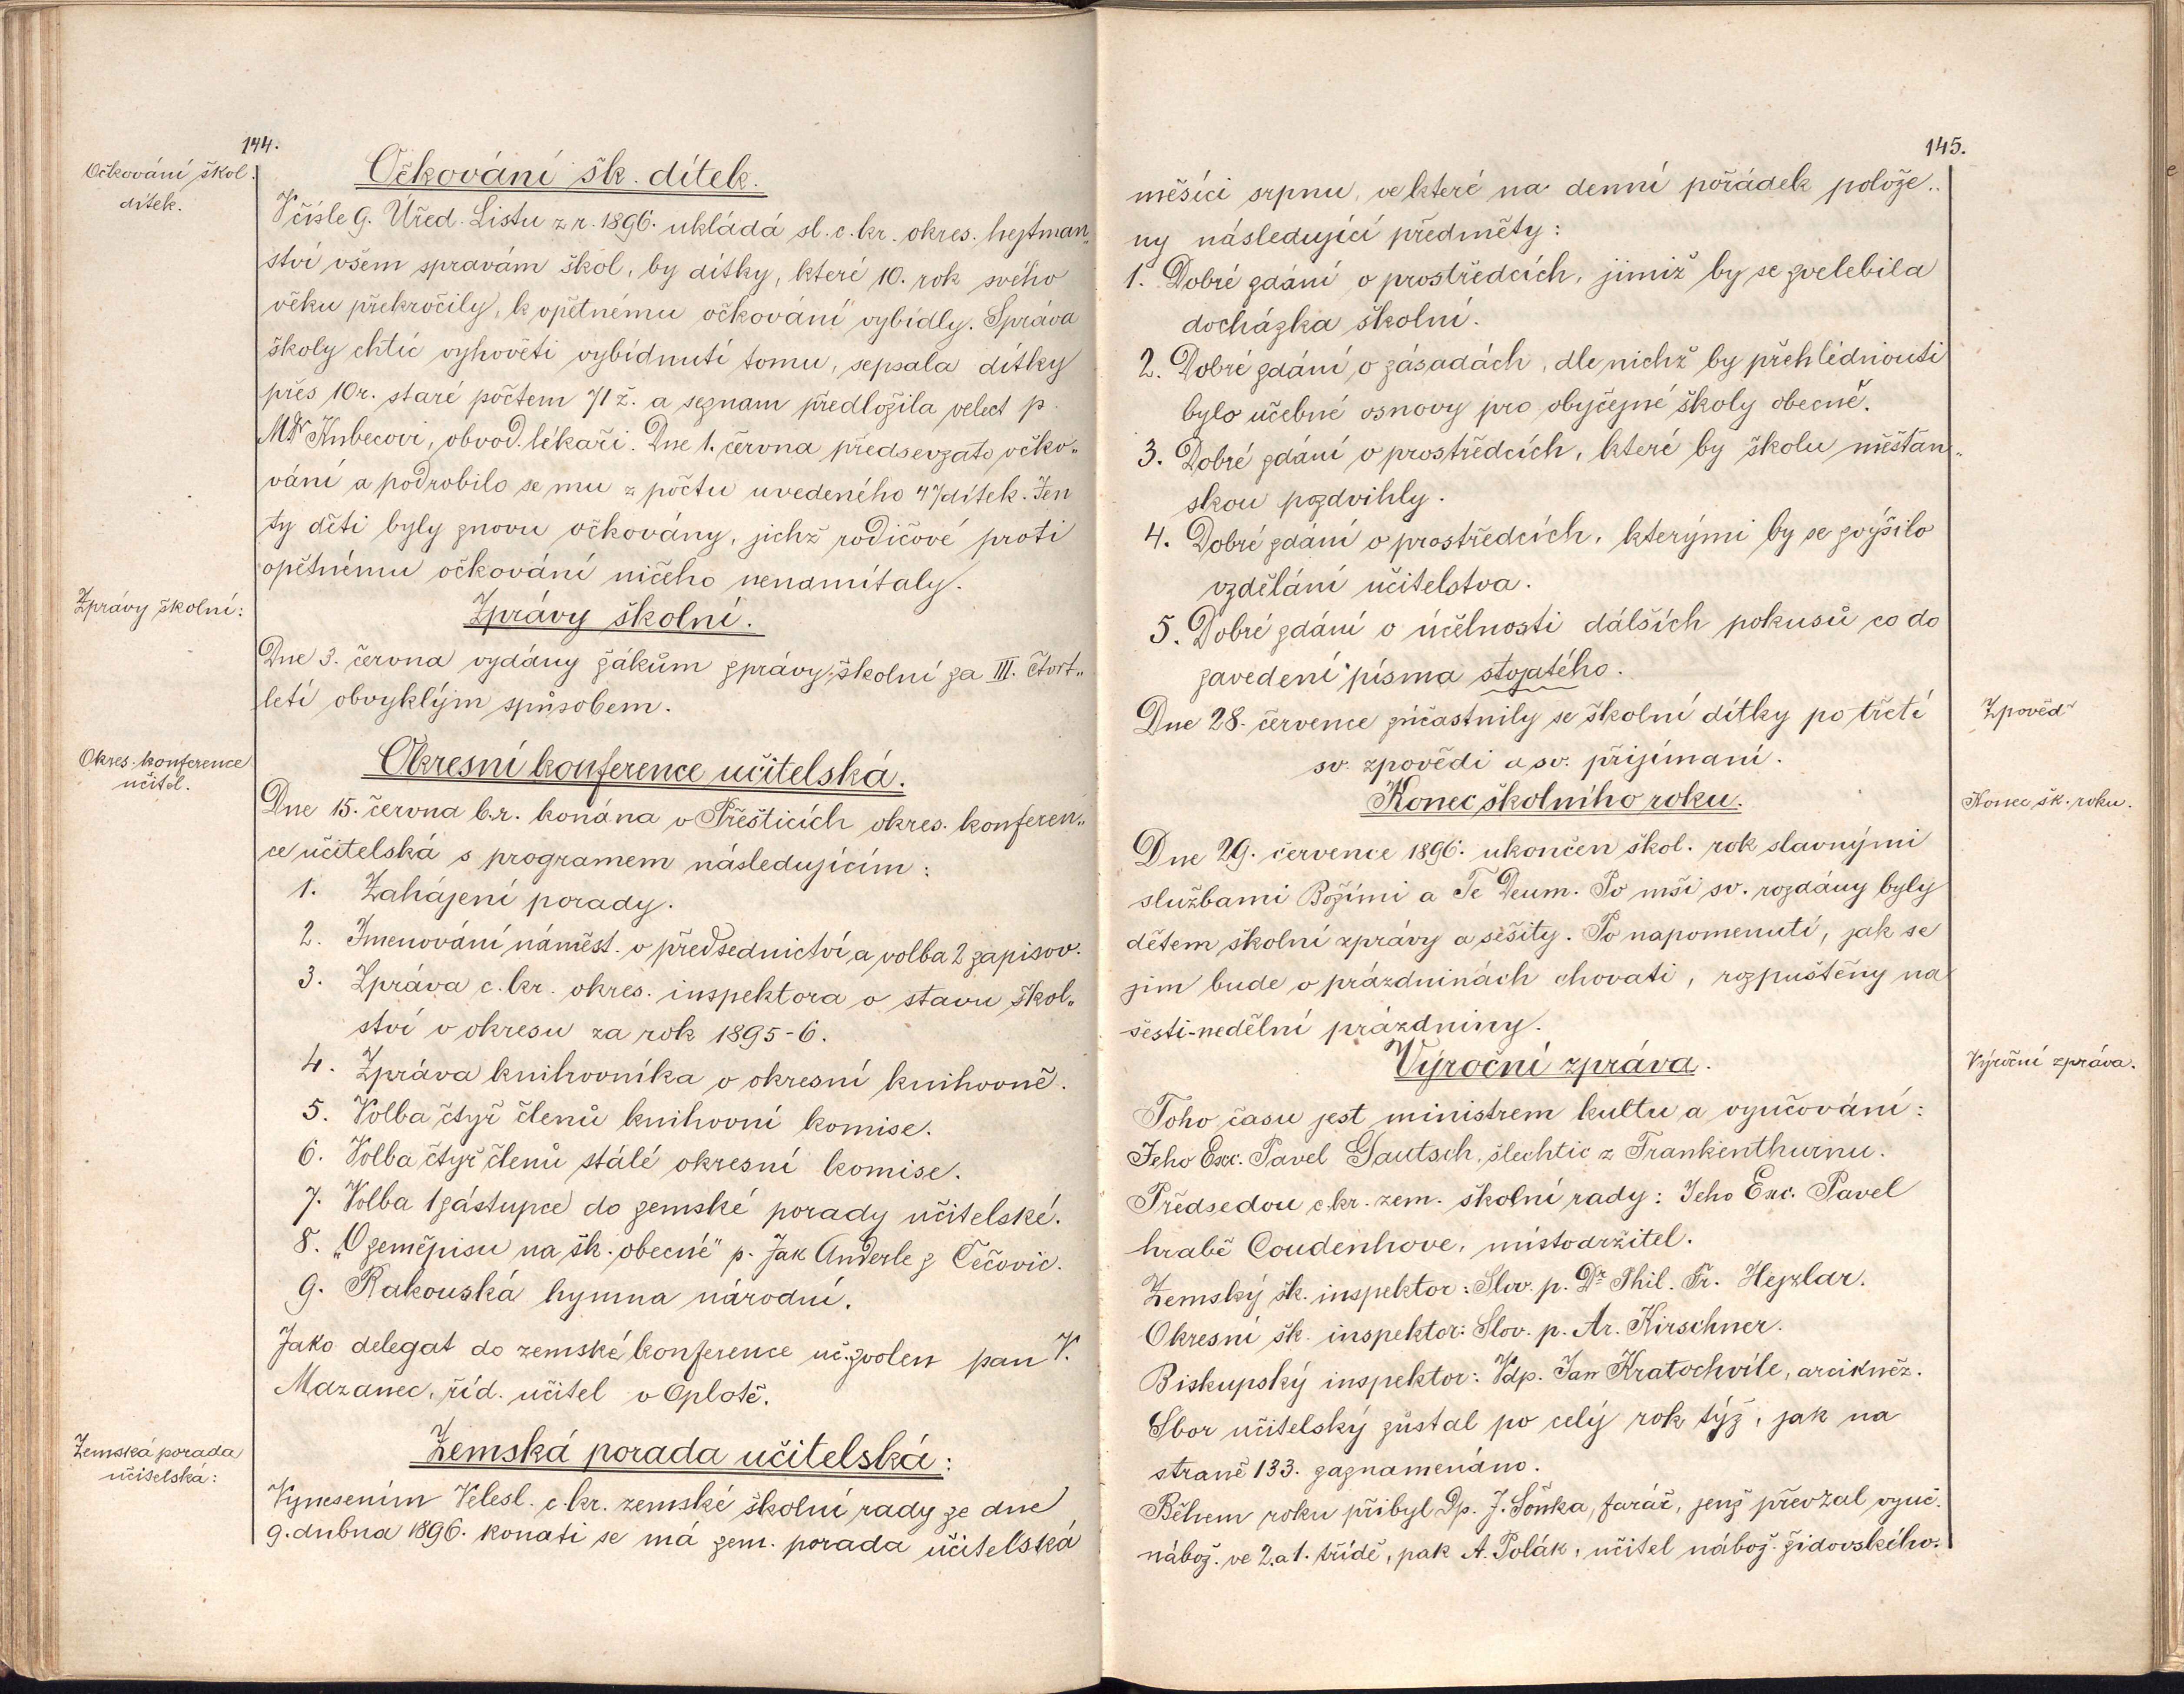 144.
Očkování škol.
dítek.
Očkování šk. dítek.
V čísle 9. Úřed. Listu z r. 1896. ukládá sl. c. kr. okres. hejtman„
ství všem spravám škol, by dítky, které 10. rok svého
věku překročily, k opětnému očkování vybídly. Správa
školy chtíc vyhověti vybídnutí tomu, sepsala dítky
přes 10 r. staré počtem 71 ž. a seznam předložila velect p.
MDr Kubecovi, obvod. lékaři. Dne 1. června předsevzato očko„
vání a podrobilo se mu z počtu uvedeného 47 dítek. Jen
ty děti byly znovu očkovány, jichž rodičové proti
opětnému očkování ničeho nenamítaly.
Zprávy školní:
Zprávy školní.
Dne 3. června vydány žákům zprávy školní za III. čtvrt„
letí obvyklým spůsobem.
Okres. konference
učitel.
Okresní konference učitelská.
Dne 15. června b. r. konána v Přešticích okres. konferen„
ce učitelská s programem následujícím:
1. Zahájení porady.
2. Jmenování náměst. v předsednictví a volba 2 zapisov.
3. Zpráva c. kr. okres. inspektora o stavu škol„
ství v okresu za rok 1895-6.
4. Zpráva knihovníka o okresní knihovně.
5. Volba čtyř členů knihovní komise.
6. Volba čtyř členů stálé okresní komise.
7. Volba 1 zástupce do zemské porady učitelské.
8. „O zeměpisu na šk. obecné" p. Jak Anderle z Čečovic.
9. Rakouská hymna národní.
Jako delegat do zemské konference uč. zvolen pan V.
Mazanec, říd. učitel v Oplotě.
Zemská porada
učitelská:
Zemská porada učitelská:
Vynesením Velesl. c. kr. zemské školní rady ze dne
9. dubna 1896. konati se má zem. porada učitelská
145.
měsíci srpnu, ve které na denní pořádek polože„
ny následující předměty:
1. Dobré zdání o prostředcích, jimiž by se zvelebila
docházka školní.
2. Dobré zdání o zásadách, dle nichž by přehlédnouti
bylo učebné osnovy pro obyčejné školy obecné.
3. Dobré zdání o prostředcích, které by školu měšťan„
skou pozdvihly.
4. Dobré zdání o prostředcích, kterými by se zvýšilo
vzdělání učitelstva.
5. Dobré zdání o účelnosti dálších pokusů co do
zavedení písma stojatého.
Dne 28. července zúčastnily se školní dítky po třetí
sv. zpovědi a sv. přijímaní.
Zpověď
Konec školního roku.
Konec šk. roku.
Dne 29. července 1896. ukončen škol. rok slavnými
službami Božími a Te Deum. Po mši sv. rozdány byly
dětem školní zprávy a sešity. Po napomenutí, jak se
jim bude o prázdninách chovati, rozpuštěny na
šesti-nedělní prázdniny.
Výroční zpráva.
Výroční zpráva.
Toho času jest ministrem kultu a vyučování:
Jeho Exc. Pavel Gautsch, šlechtic z Frankenthurnu.
Předsedou c. kr. zem. školní rady: Jeho Exc. Pavel
hrabě Coudenhove, místodržitel.
Zemský šk. inspektor: Slov. p. Dr Phil. Fr. Hejzlar.
Okresní šk. inspektor: Slov. p. Ar. Kirschner.
Biskupský inspektor: Vdp. Jan Kratochvíle, arcikněz.
Sbor učitelský zůstal po celý rok týž, jak na
straně 133. zaznamenáno.
Během roku přibyl Dp. J. Soňka, farář, jenž převzal vyuč.
nábož. ve 2. a 1. třídě, pak A. Polák, učitel nábož. židovského.